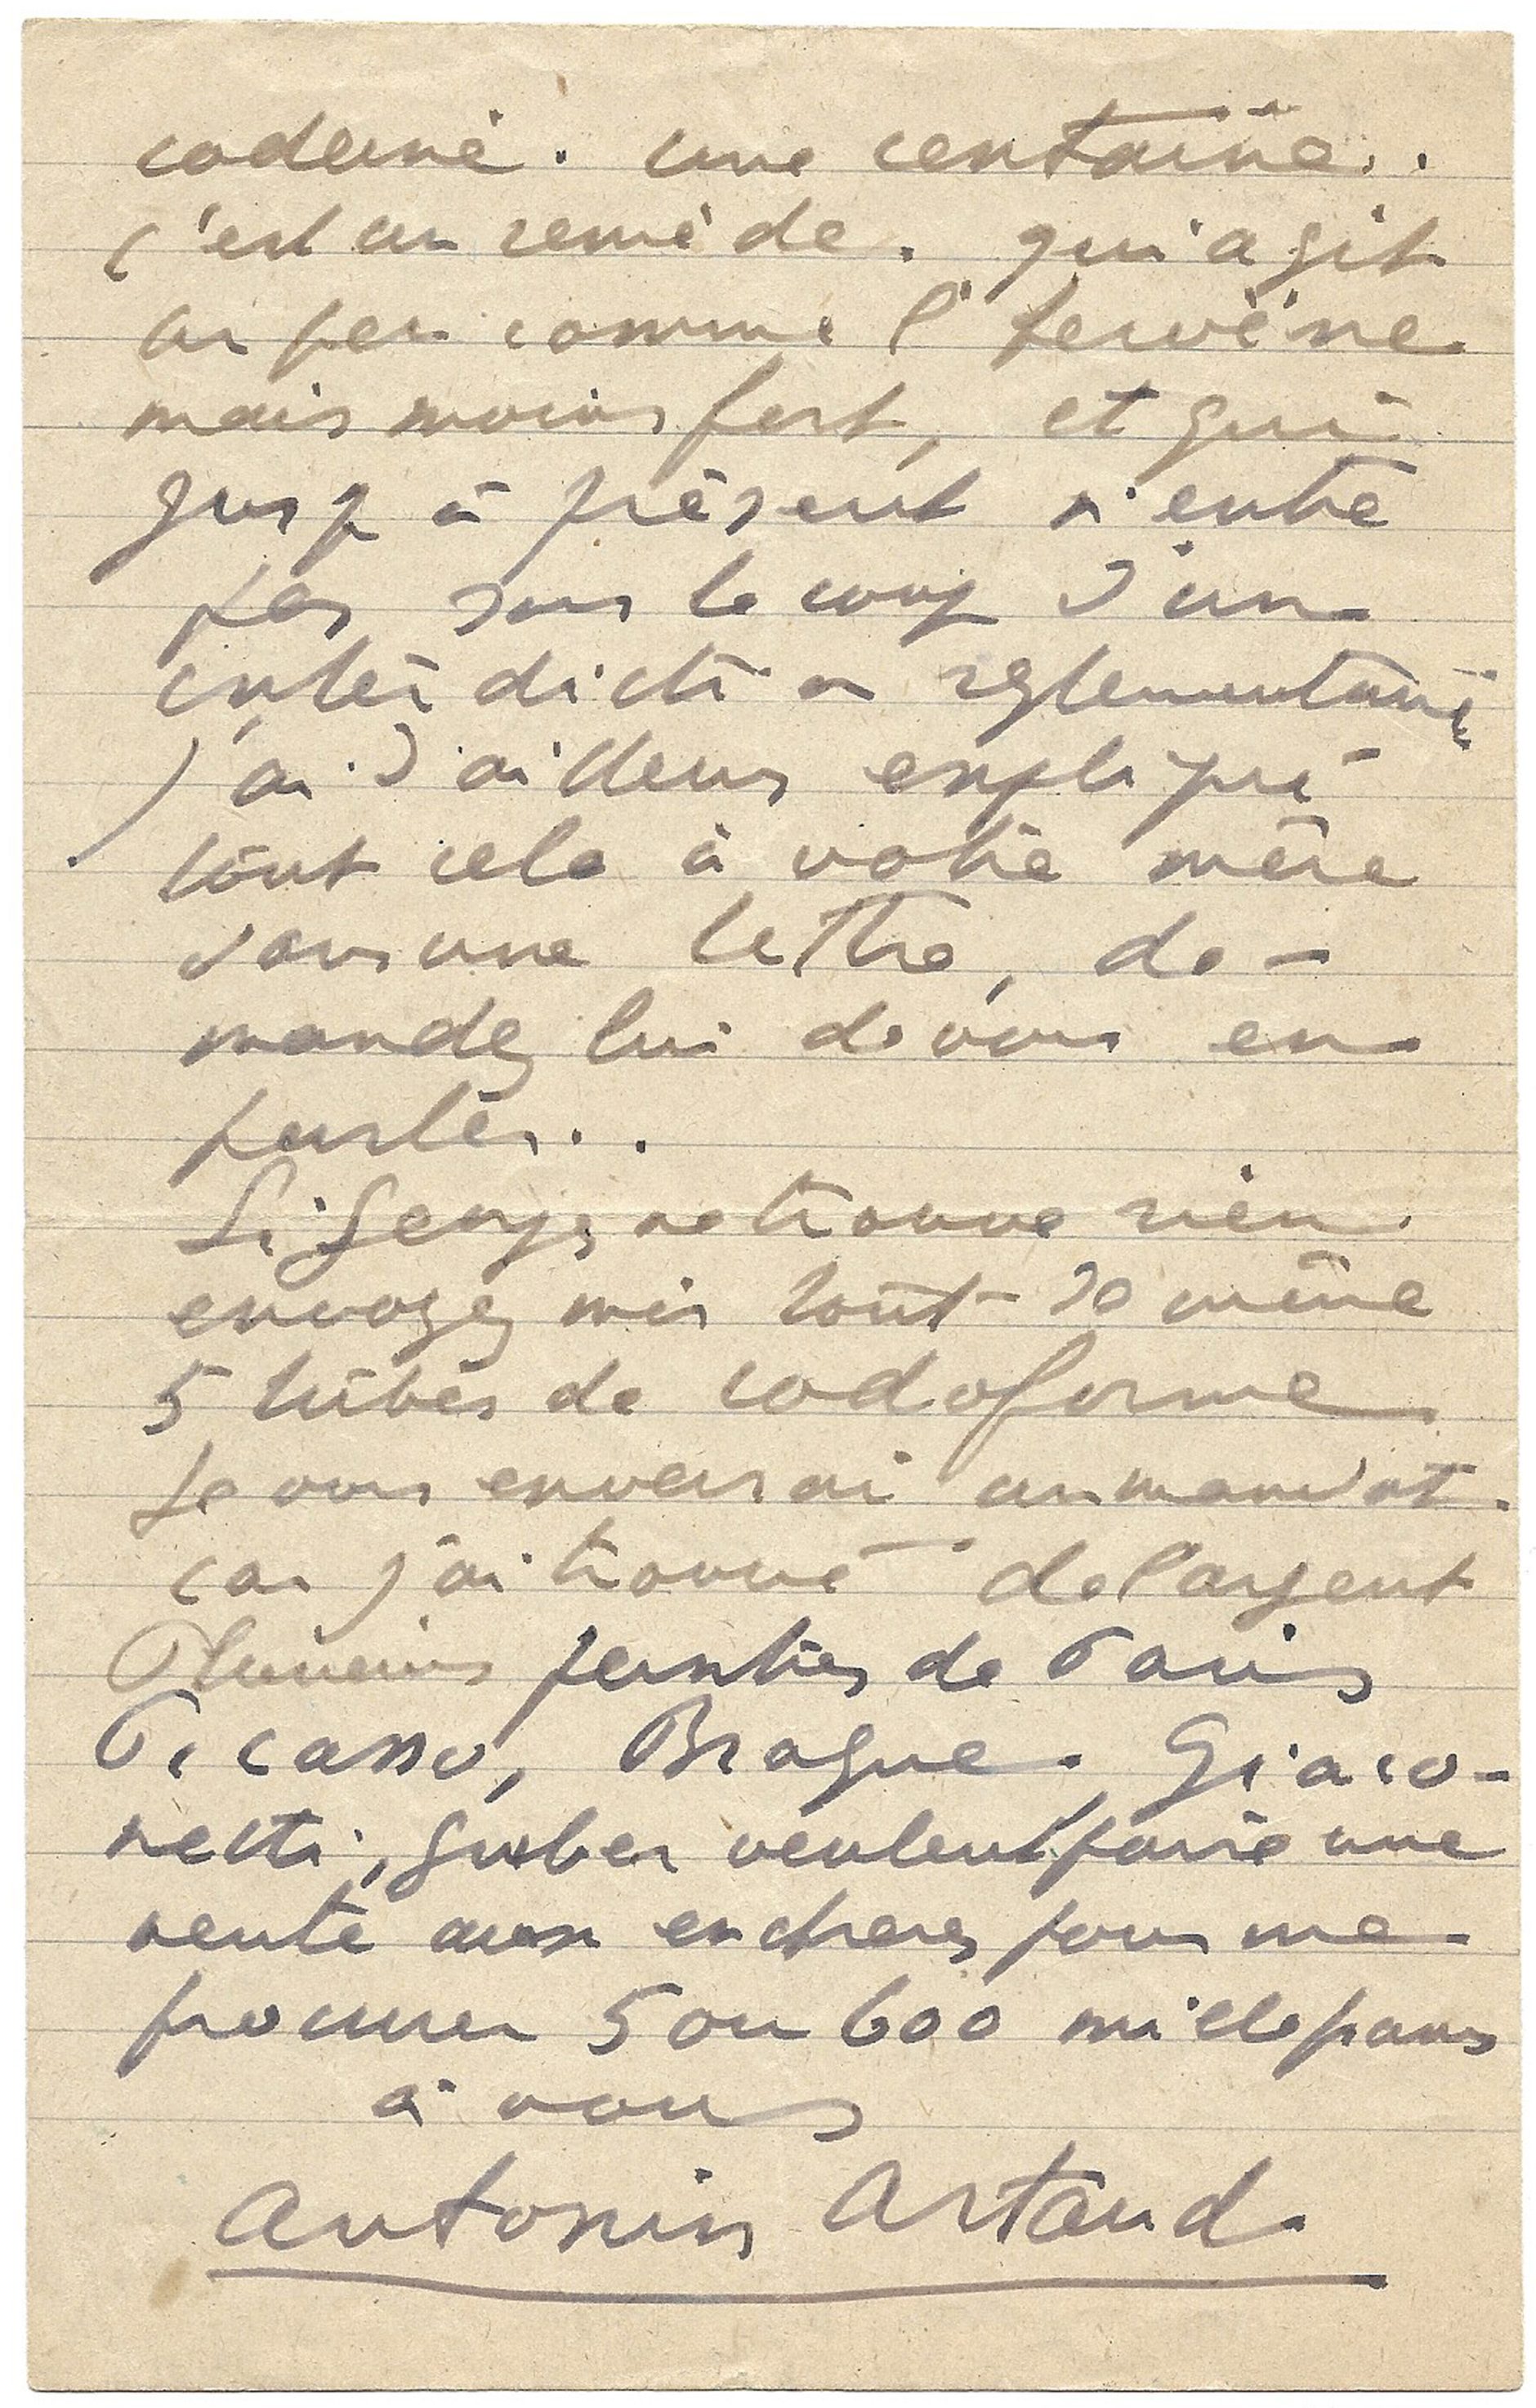 codeine. une centaine..
c'est un remède. qui agit
un peu comme l'
mais moins fort, et qui
jusq à présent n'entre
pas sous le coup d'une
interdiction reglementaire
j'ai d'ailleurs expliqué
tout cela à votre mère
dans une lettre, de-
mandez lui de vous en
parler..
Si Serge ne trouve rien.
envoyez mis tout de même
5 tubes de codoforme
Je vous enverrai un mandat.
car j'ai trouvé de l'argent
Plusieurs peintres de Paris
Picasso, Braque, Giaco-
metti, Gruber veulent faire une
vente aux encheres pour me
procurer 5 ou 600 mille francs
à vous
Antonin Artaud